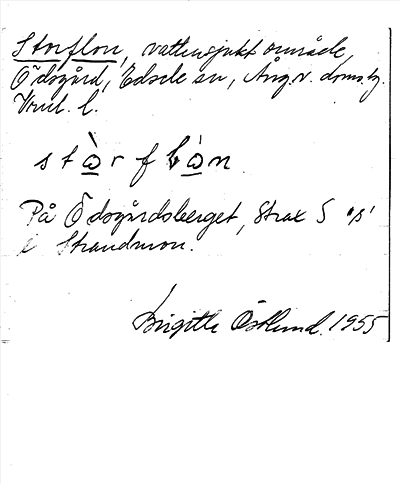 Storflon, vattensjukt område,
Ödsgård, Edsele sn, Ång.v. doms.tg.
Vnl. l.
stò̲rfló̲n
På Ödsgårdsberget, strax S
Strandmon.
Birgitta Östlund. 1955